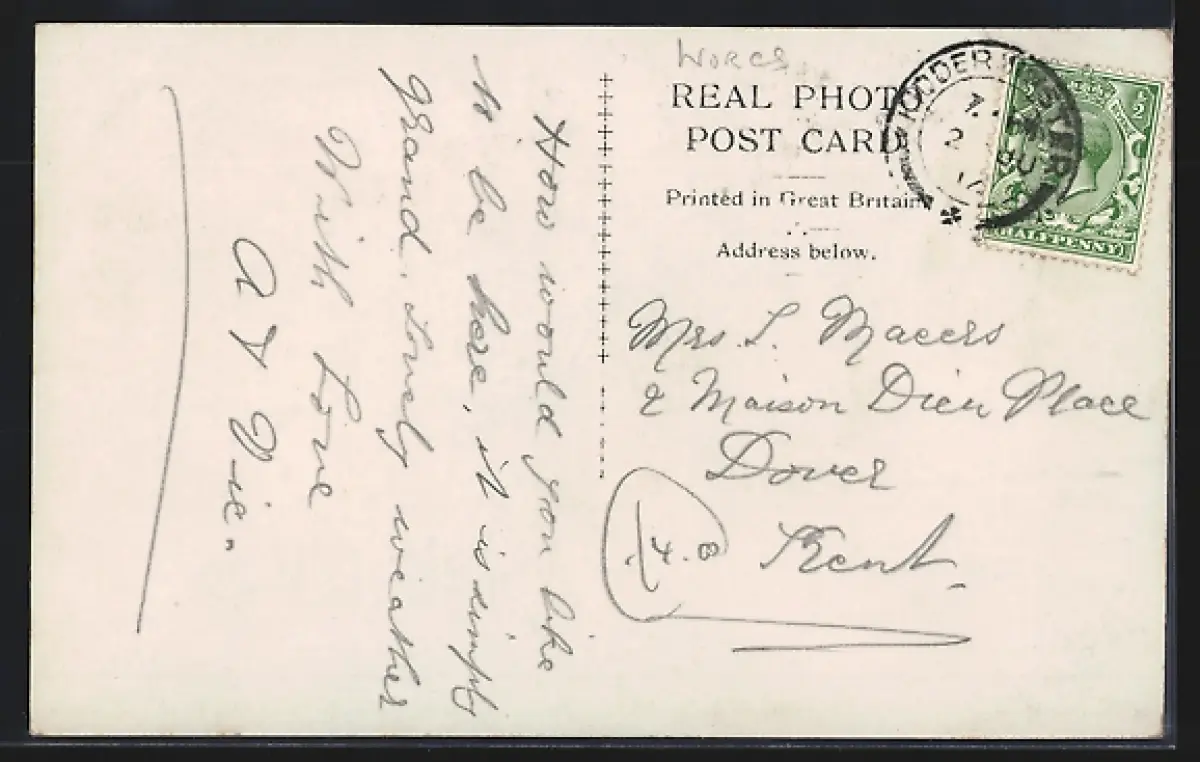 Worcs
REAL PHOTO
POST CARD
Printed in Great Britain
Address below.
KIDDERMINSTER
7.
2 AU
½ ½
HALFPENNY
Mrs. L. Macers
2 Maison Dieu Place
Dover
Kent.
How would you like
to be here, it is simply
grand. Lovely weather
With Love
Vic.